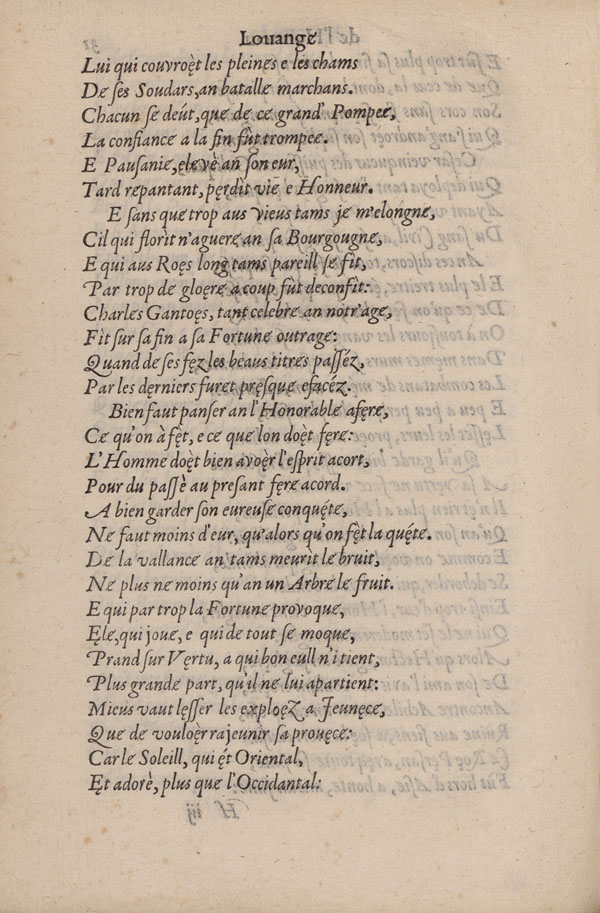 Louange
Lui qui couvroęt les pleines e les chams
De ses Soudars, an batalle marchans.
Chacun se deút, que de ce grand Pompee,
La confiance a la fin fùt trompee.
E Pausanie, elevè an son eur,
Tard repantant, pęrdìt vie e Honneur.
E sans que trop aus vieus tams je m'elongne,
Cil qui florìt n'aguere an sa Bourgougne,
E qui aus Roęs long tams pareill se fìt,
Par trop de gloęre a coup fùt deconfìt:
Charles Gantoęs, tant celebre an notr'age,
Fìt sur sa fin a sa Fortune outrage:
Quand de ses fęz les beaus titres passéz,
Par les dęrniers furet pręsque efacéz.
Bien faut panser an l'Honorable afęre,
Ce qu'on à fęt, e ce que lon doęt fęre:
L'Homme doęt bien avoęr l'esprit acort,
Pour du passè au presant fęre acord.
A bien garder son eureuse conquéte,
Ne faut moins d'eur, qu'alors qu'on fęt la quéte.
De la vallance an tams meurìt le bruit,
Ne plus ne moins qu'an un Arbre le fruit.
E qui par trop la Fortune provoque,
Ęle, qui joue, e qui de tout se moque,
Prand sur Vęrtu, a qui bon eull n'i tient,
Plus grande part, qu'il ne lui apartient:
Mieus vaut lęsser les exploęz a Jeunęce,
Que de vouloęr rajeunir sa prouęce:
Car le Soleill, qui ét Oriental,
Ęt adorè, plus que l'Occidantal: